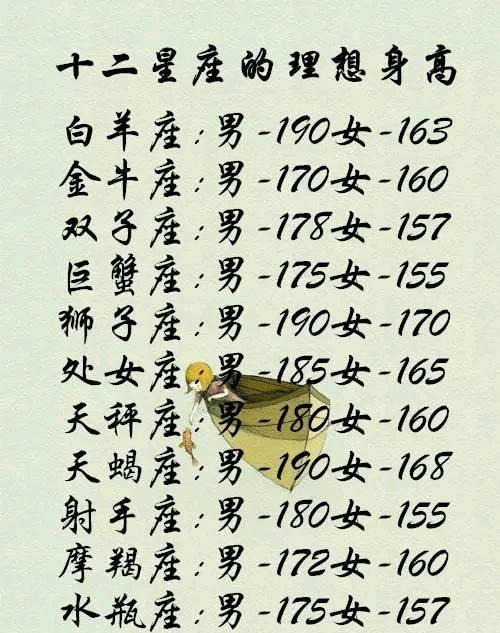 十二星座的理想身高
白羊座:男-190女-163
金牛座:男-170女-160
双子座:男-178女-157
巨蟹座:男-175女-155
狮子座:男-190女-170
处女座:男-185女-165
天秤座:男-180女-160
天蝎座:男-190女-168
射手座:男-180女-155
摩羯座:男-172女-160
水瓶座:男-175女-157